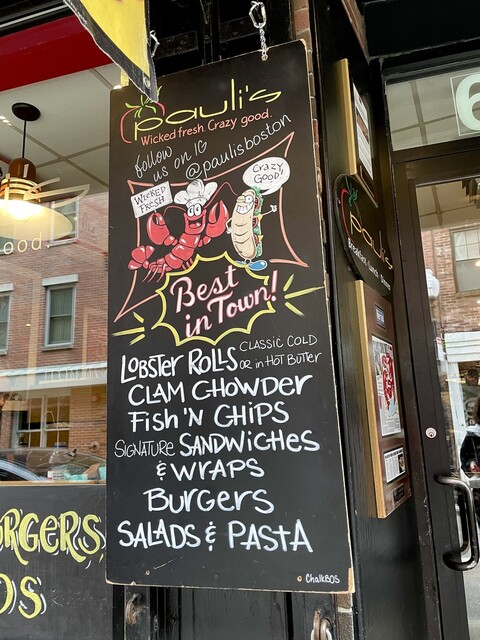 pauli's
Wicked fresh. Crazy good.
follow
us on IG
@paulisboston
WICKED
FRESH
CRAZY
GOOD!
Best
in Town!
LOBSTER ROLLS CLASSIC COLD
OR in HOT BUTTER
CLAM CHOWDER
FISH 'N CHIPS
SIGNATURE SANDWICHES
& WRAPS
BURGERS
SALADS & PASTA
ChalkBOS
ood.
pauli's
Breakfast Lunch Dinner
6
RGERS
OS